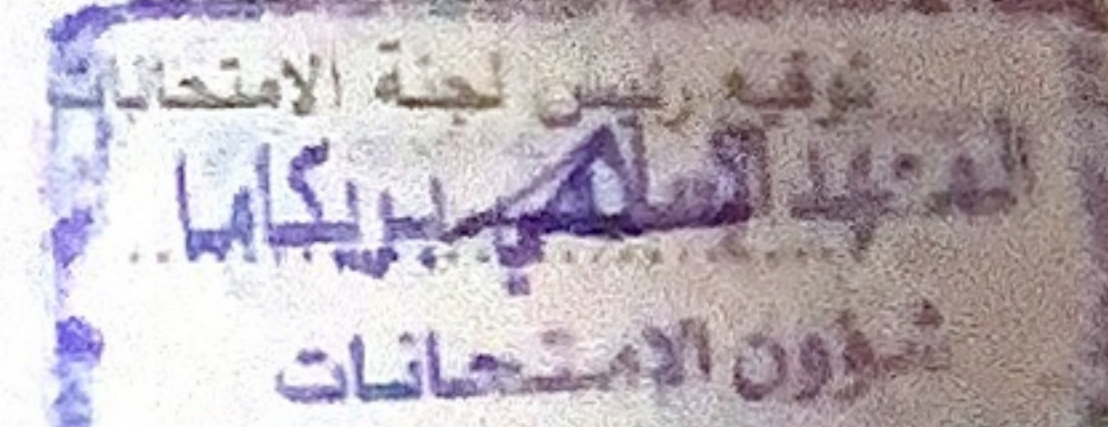 توقيع رئيس لجنة الامتحانات
المعهد السلفي ببريكاما
شؤون الامتحانات